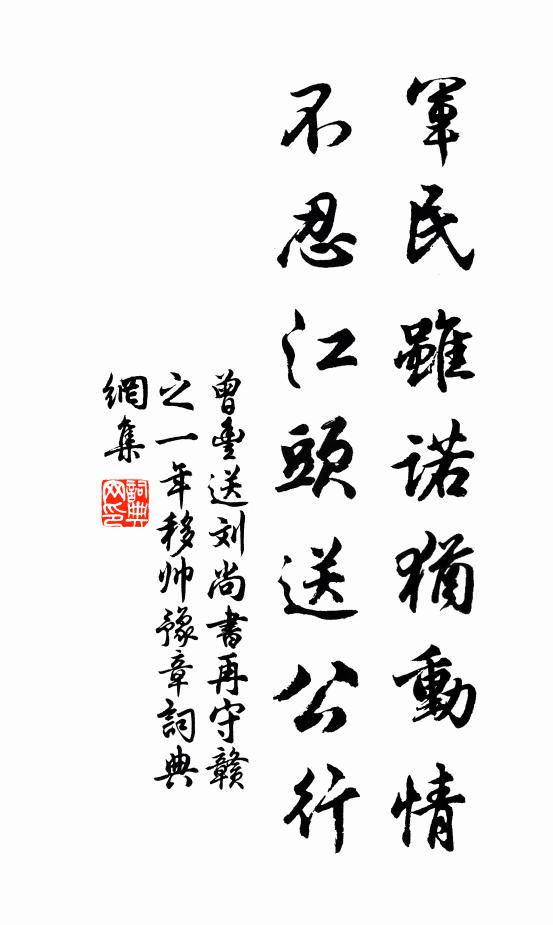 軍民雖諾猶動情
不忍江頭送公行
曾豐送刘尚書再守贛
之一年移帅豫章詞典
網集
詞典網印